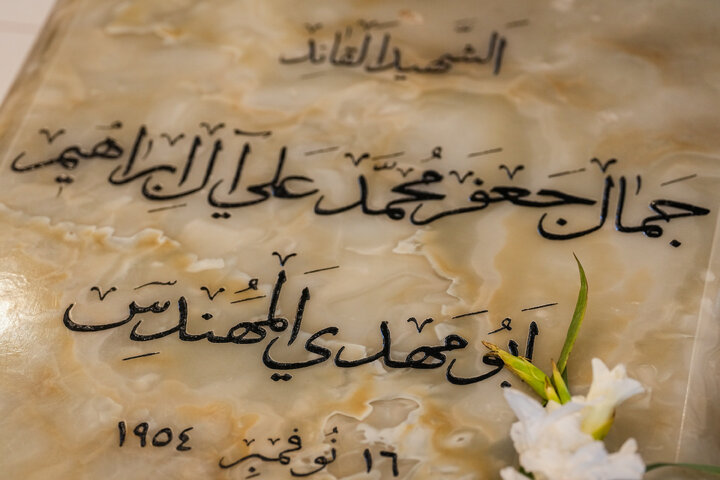 الشهيد القائد
جمال جعفر محمّد علي آل إبراهيم
أبو مهدي المهندس
١٦ نوفمبر ١٩٥٤